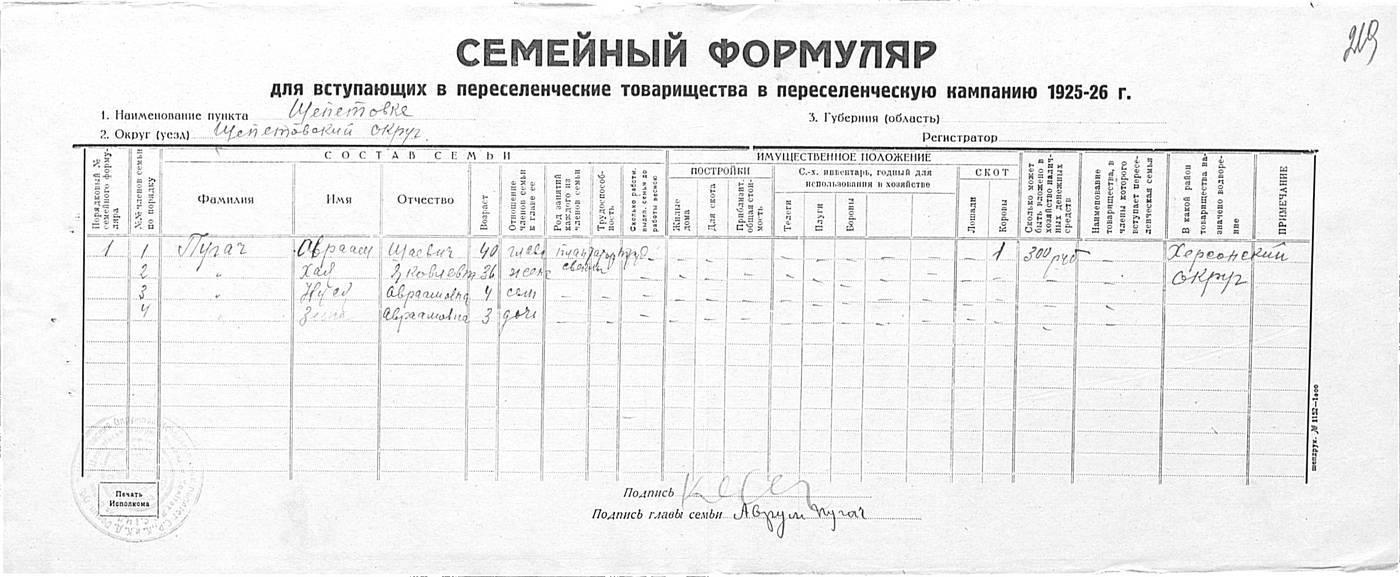 219
СЕМЕЙНЫЙ ФОРМУЛЯР
для вступающих в переселенческие товарищества в переселенческую кампанию 1925-26 г.
1. Наименование пункта Щепетовке
3. Губерния (область)
2. Округ (уезд) Щепетовский округ.
Регистратор
СОСТАВ СЕМЬИ
ИМУЩЕСТВЕННОЕ ПОЛОЖЕНИЕ
Порядковый № семейного формуляра
№№ членов семьи по порядку
Фамилия
Имя
Отчество
Возраст
Отношение членов семьи к главе ее
Род занятий каждого из членов семьи
Трудоспособность
Сколько работн. выдел. семья до работы весною
ПОСТРОЙКИ
Жилые дома
Для скота
Приблизит. общая стоимость
С.-х. инвентарь, годный для использования в хозяйстве
Телеги
Плуги
Бороны
СКОТ
Лошади
Коровы
Сколько может быть вложено в хозяйство наличных денежных средств
Наименование товарищества, в члены которого вступает переселенческая семья
В какой район товарищества назначено водворение
ПРИМЕЧАНИЕ
1 1 Пугач Авраам 40 глава – – – – – – – 1 300 руб – Херсонский
2 " Хая Яковлевна 36 жена – – – – – – – – – – округ
3 " Авраамовна 4 – – – – – – – – – – –
4 " Авраамовна 3 дочь – – – – – – – – – –
шепдрук. № 1152—1000
Печать
Исполкома
Подпись
Подпись главы семьи Аврум Пугач